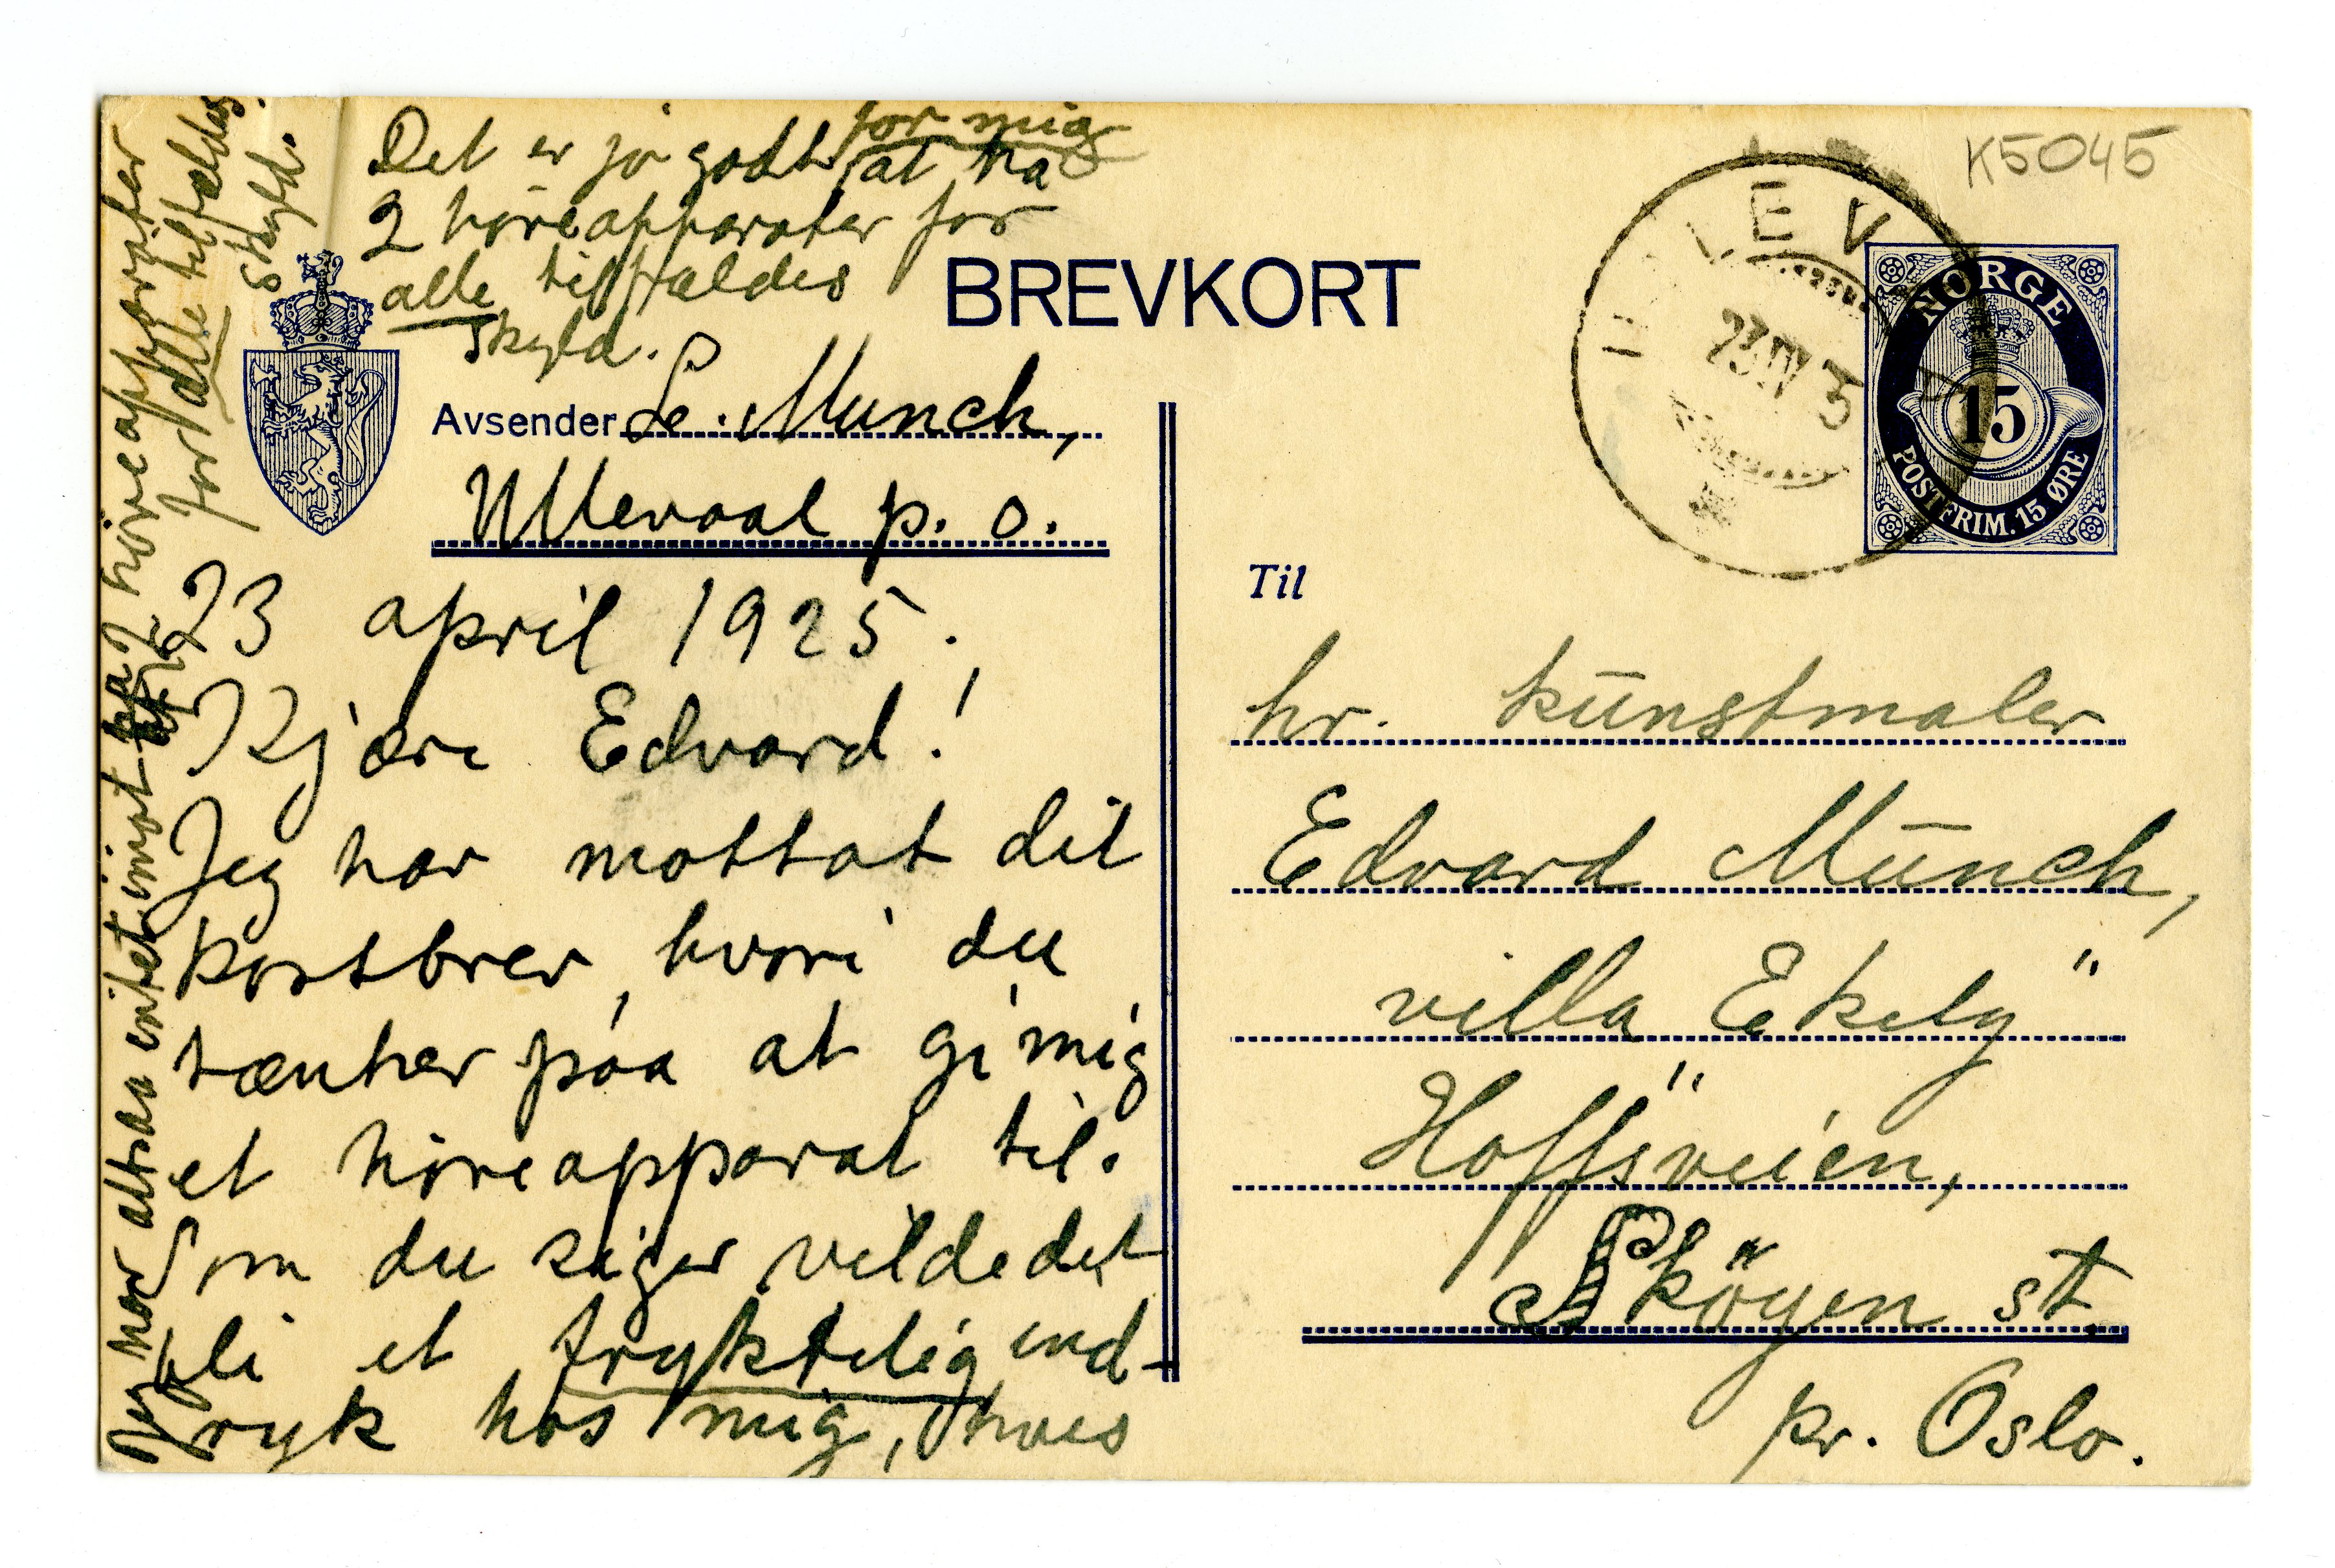 Det er jo godt for mig at ha
2 höreapparater for
alle tilfældes
skyld.
BREVKORT
K5045
NORGE
15
POSTFRIM. 15 ØRE
23 IV
Avsender L. Munch,
Ullevaal p. o.
23 april 1925.
Kjære Edvard!
Jeg har mottat dit
kortbrev, hvori du
tænker paa at gi mig
et höreapparat til.
Som du siger vilde det
bli et fryktelig ind-
tryk hos mig, hvis
Jeg har altsaa intet imot at ha 2 höreapparater
for alle tilfældes
skyld.
Til
hr. kunstmaler
Edvard Munch,
villa "Ekely"
Hoffsveien,
Sköyen st.
pr. Oslo.